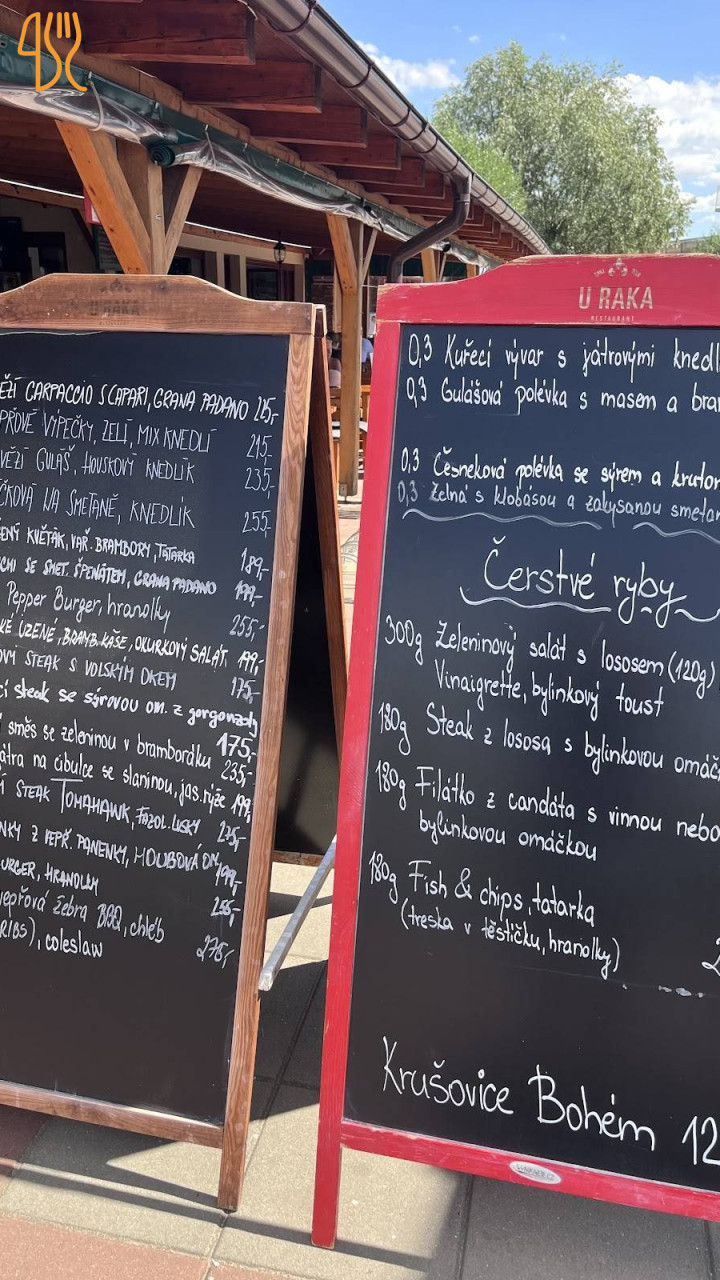 U RAKA
ĚŽÍ CARPACCIO S CAPARI, GRANA PADANO 215,-
PŘOVÉ VÝPEČKY, ZELÍ, MIX KNEDLÍ 215,-
VĚZÍ GULÁŠ, HOUSKOVÝ KNEDLÍK 235,-
ČKOVÁ NA SMETANĚ, KNEDLÍK 255,-
ENÝ KVĚTÁK, VAŘ. BRAMBORY, TATARKA 189,-
CHI SE SMET. ŠPENÁTEM, GRANA PADANO 199,-
Pepper Burger, hranolky 255,-
KÉ UZENÉ, BRAMB. KAŠE, OKURKOVÝ SALÁT 199,-
OVÝ STEAK S VOLSKÝM OKEM 175,-
cí steak se sýrovou om. z gorgonzoly 175,-
í směs se zeleninou v bramboráku 235,-
átra na cibulce se slaninou, jas. rýže 199,-
Í STEAK TOMAHAWK, FAZOL. LUSKY 275,-
NKY Z VEPŘ. PANENKY, HOUBOVÁ OM. 199,-
URGER, HRANOLKY 255,-
vepřová žebra BBQ, chléb
RIBS), coleslaw 275,-
U RAKA
RESTAURANT
0,3 Kuřecí vývar s játrovými knedl
0,3 Gulášová polévka s masem a bra
0,3 Česneková polévka se sýrem a kruton
0,3 Zelná s klobásou a zakysanou smeta
Čerstvé ryby
300g Zeleninový salát s lososem (120g)
Vinaigrette, bylinkový toust
180g Steak z lososa s bylinkovou omáč
180g Filátko z candáta s vinnou nebo
bylinkovou omáčkou
180g Fish & chips, tatarka
(treska v těstíčku, hranolky) 2
Krušovice Bohém 12